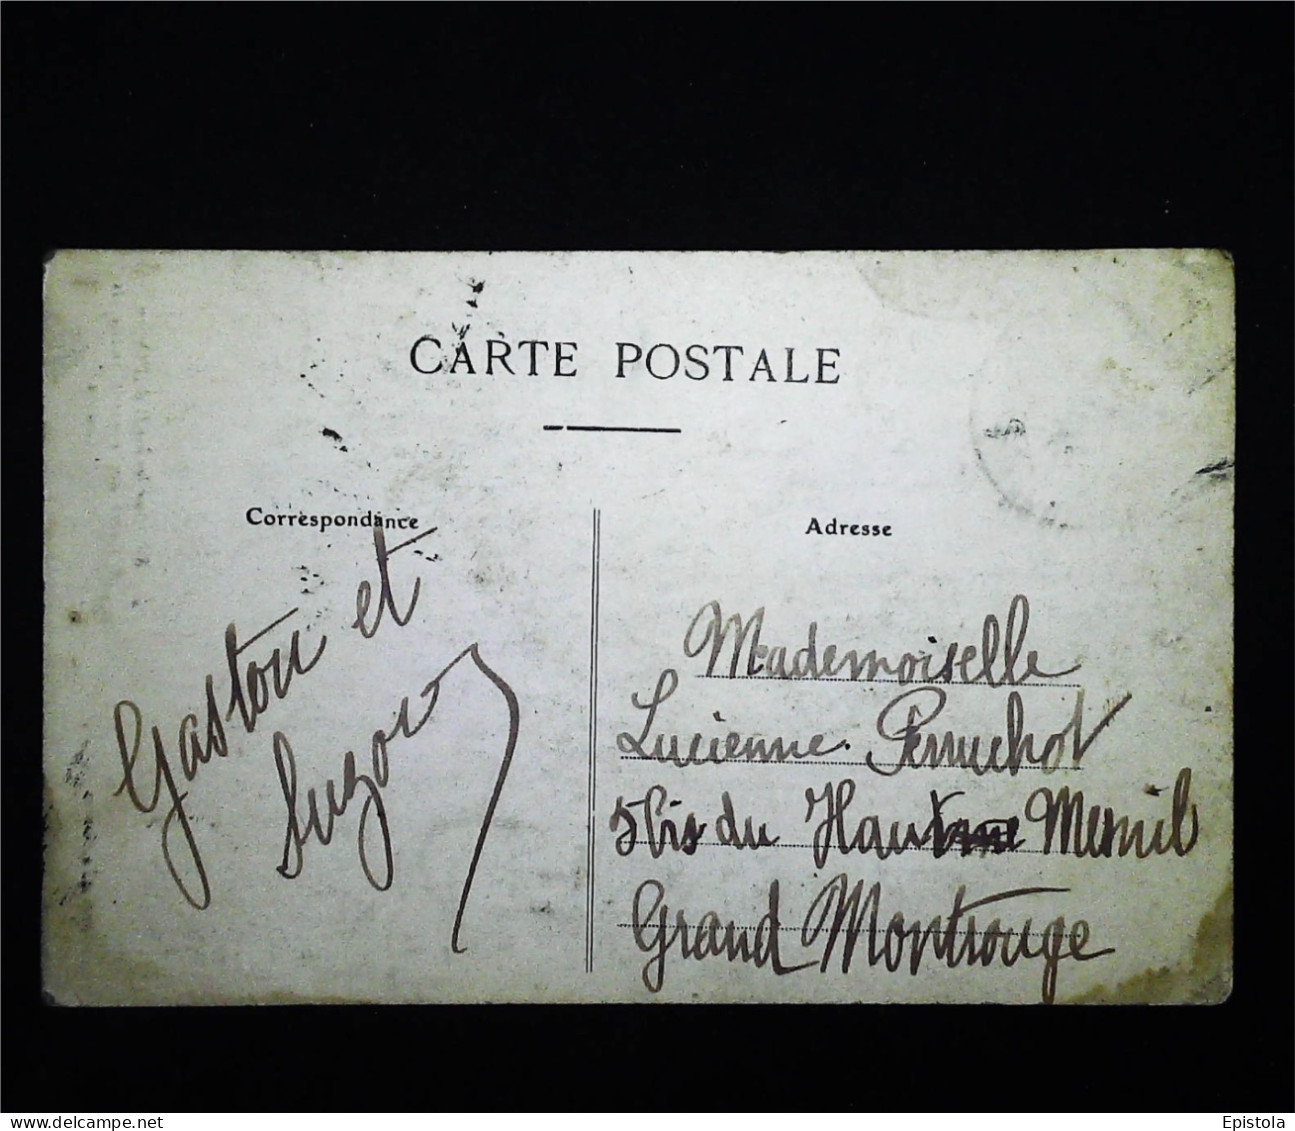 CARTE POSTALE
Correspondance
Gaston et
Suzon
Adresse
Mademoiselle
Lucienne Perruchot
5 bis du Haut Mesnil
Grand Montrouge
www.delcampe.net
Epistola